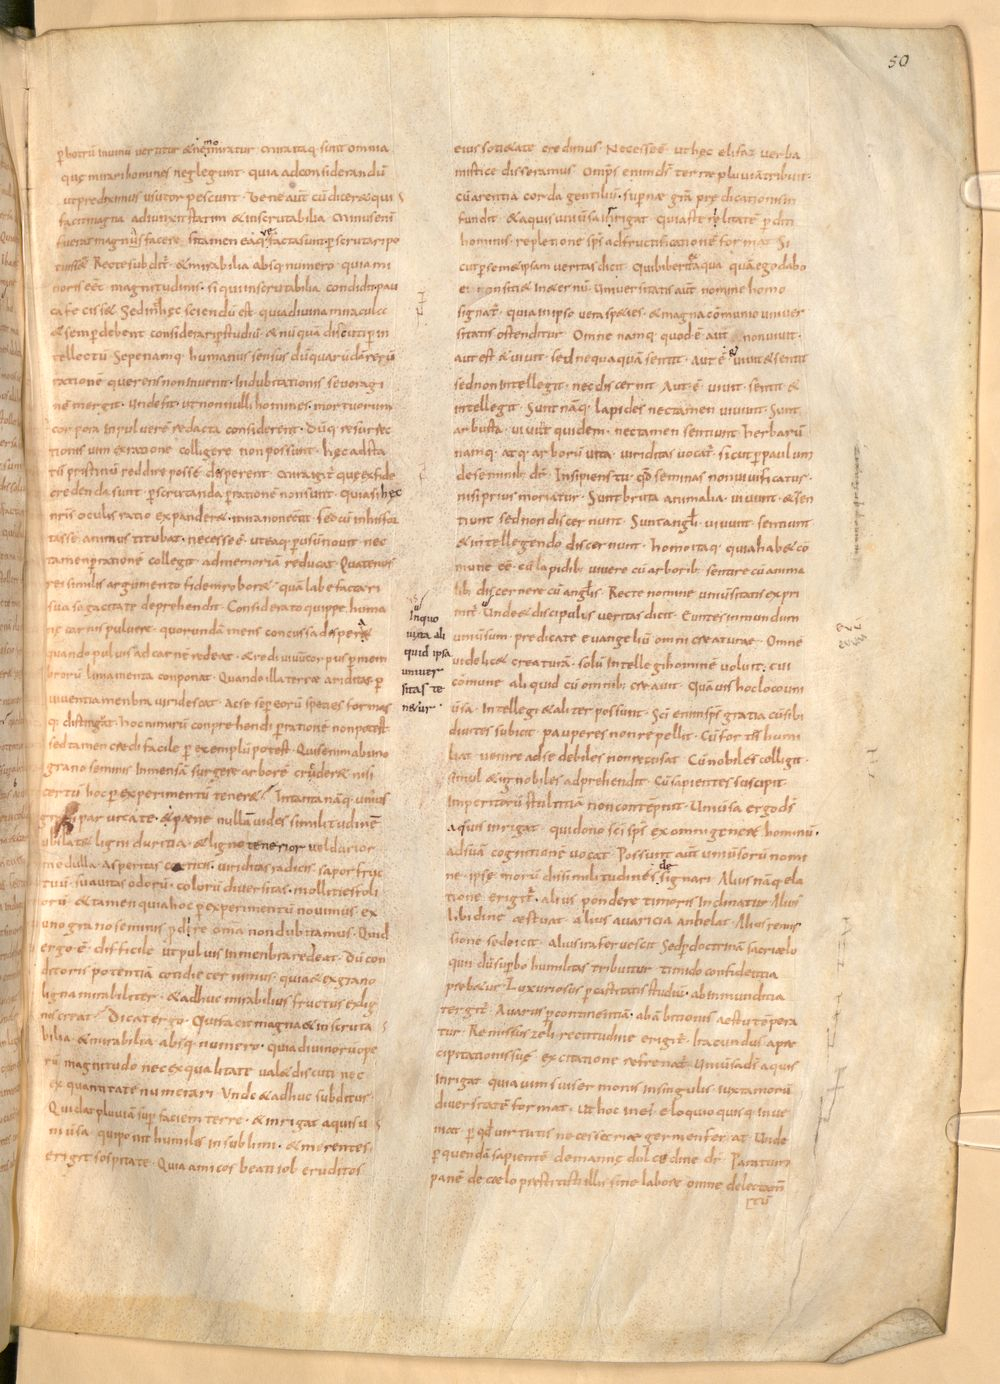 50
ꝑ botrũ inuinũ uertitur & nemo miratur. Mira itaq; sunt omnia
quę mirari homines neglegunt. quia ad considerandũ
ut prediximus usu torpescunt. Bene aut̃ cũ diceret qui
facit magna adiunxit statim & inscrutabilia. Minus enĩ
fuerat magna facere. si tamen ea quę facta sunt perscrutari po
tuisset. Recte subdit̃. & mirabilia absq; numero. quia mi
noris eẽt magnitudinis. si qui inscrutabilia condidit pau
ca fecisset. Sed inter hęc sciendũ est. quia diuina miracula
& semꝑ debent considerari ꝑ studiũ. & nũquã discuti ꝑ in
tellectũ. Sepe namq; humanus sensus dũ quarũdã rerũ
rationẽ querens non inuenit. In dubitationis se uoragi
ne mergit. Unde fit. ut nonnulli homines. mortuorum
corpora in puluerẽ redacta considerent. Dũq; resurrec
tionis uim ex ratione colligere non possunt. hęc ad sta
tũ pristinũ reddire posse desperent. Mira igit̃ que ex fide
credenda sunt. ꝑscrutanda ꝑ rationẽ non sunt. quia si hęc
nr̃is oculis ratio expanderet. mira non eẽnt. Sed cũ in his for
tasse animus titubat. necesse ẽ. ut ea quę ꝑ usũ nouit. nec
tamen ꝑ rationẽ collegit. ad memoriã reducat. Quatenus
rei similis argumento fidem roboret. quã labefactari
sua sagacitate deprehendit. Considerato quippe huma
ne carnis puluere. quorundã mens concussa desperat
quando puluis ad carnẽ redeat. & rediuiuũ corpus ꝑ mem
brorũ liniamenta conponat. Quando illa terrae ariditas ꝑ
uiuentia menbra uiridescat. Ac se ꝑ eorũ species formas
q; distinguat. hoc nimirũ conprehendi ꝑ rationẽ non potest
sed tamen credi facile ꝑ exemplũ potest. Quis enim ab uno
grano seminis inmensã surgere arborẽ crederet nisi
certũ hoc ꝑ experimentũ teneret? In tanta nãq; unius
grani paruitate. & pene nulla in se dissimilitudine
ubi latet ligni duritia. & ligno tenerior uel durior
medulla. asperitas corticis. uiriditas radicis. sapor fruc
tuũ. suauitas odorũ. colorũ diuersitas. mollities foli
orũ. & tamen quia hoc ꝑ experimentũ nouimus ex
uno grano seminis prodire omnia non dubitamus. Quid
ergo ẽ difficile ut puluis in menbra redeat. Dũ con
ditoris potentiã cotidie cernimus. qui & ex grano
ligna mirabiliter. & adhuc mirabilius fructus ex lig
nis creat. Dicat ergo. Qui facit magna & inscruta
bilia & mirabilia absq; numero. quia diuinorũ ope
rũ magnitudo nec ex qualitate ualet discuti nec
ex quantitate numerari. Unde & adhuc subditur.
Qui dat pluuiã super faciem terre. & inrigat aquis u
niuersa. qui ponit humiles in sublimi. & merentes
erigit sospitate. Quia amicos beati iob eruditos
In quo
uita ali
quid ipsa
uniuer
sitas te
netur.
eius societate credimus. Necesse ẽ ut hęc elifaz uerba
mistice disseramus. Omnp̃s enim d̃s terrae pluuiã tribuit.
cũ arentia corda gentiliũ. supernae gratiã predicationis in
fundit. & aquis uniuersa inrigat. quia sterilitatẽ ꝑditi
hominis. repletione sp̃s ad fructificationẽ format. Si
cut ꝑ semet ipsam ueritas dicit. Qui biberit ex aqua quã ego dabo
ei. non sitiet in aeternũ. Uniuersitatis aut̃ nomine homo
signat̃. quia in ipso uera species. & magna cõmunio uniuer
sitatis ostenditur. Omne namq; quod ẽ aut ẽ & non uiuit.
aut est & uiuit. sed nequaquã sentit. Aut ẽ & uiuit & sentit
sed non intellegit. nec discernit. Aut ẽ. uiuit. sentit. &
intellegit. Sunt nãq; lapides nec tamen uiuunt. Sunt
arbusta. uiuunt quidem. nec tamen sentiunt. herbarũ
namq; atq; arborũ uita. uiriditas uocat̃. sicut ꝑ paulum
de seminib; dr̃. Insipiens tu. qđ seminas non uiuificatur.
nisi prius moriatur. Sunt bruta animalia. uiuunt. & sen
tiunt. sed non discernunt. Sunt angl̃i. uiuunt. sentiunt
& intellegendo discernunt. homo itaq; quia habet cõ
mune eẽ. cũ lapidib; uiuere cũ arborib; sentire cũ anima
lib; discernere cũ angl̃is. Recte nomine uniuersitatis expri
mit̃. Unde & discipulis ueritas dicit. Euntes in mundum
uniuersum. predicate euangeliũ omni creaturae. Omnẽ
uidelicet creaturã. solũ intellegi hominẽ uoluit. cui
cõmune aliquid cũ omnib; creauit. Quãuis hoc loco uni
uersa. Intellegi & aliter possunt. Sc̃i enim sp̃s gratia cũ sibi
diuites subicit. pauperes non repellit. Cũ fortes humi
liat. uenire ad se debiles non recusat. Cũ nobiles colligit.
simul & ignobiles adprehendit. Cũ sapientes suscipit
Imperitorũ stultitiã non contẽpnit. Uniuersa ergo d̃s
aquis inrigat. qui dono sc̃i sp̃s ex omni genere hominũ.
ad suã cognitionẽ uocat. Possunt aut̃ uniuersorũ nomi
ne. ipse morũ dissimilitudines designari. Alius nãq; ela
tione erigit̃. alius pondere timoris inclinatur. Alius
libidine aestuat. alius auaricia anhelat. Alius remis
sione se deicit. alius ira feruescit. Sed ꝑ doctrinã sacri elo
quii. dũ superbo humilitas tribuitur. timido confidentia
prebetur. Luxuriosus ꝑ castitatis studiũ. ab inmunditia
tergit̃. Auarus ꝑ continentiã. ab ãbitionis aestu tẽpera
tur. Remissus zeli rectitudine erigit̃. Iracundus a prae
cipitationis suę excitatione refrenat̃. Uniuersa d̃s aquis
inrigat. quia uim sui sermonis in singulis iuxta morũ
diuersitatẽ format. Ut hoc in eius eloquio quisq; inue
niat ꝑ qđ uirtutis necessariae germen ferat. Unde
ꝑ quendã sapientẽ de mannę dulcedine dr̃. Paratum
panẽ de caelo prestitisti illis sine labore omne delectam̃
tũ